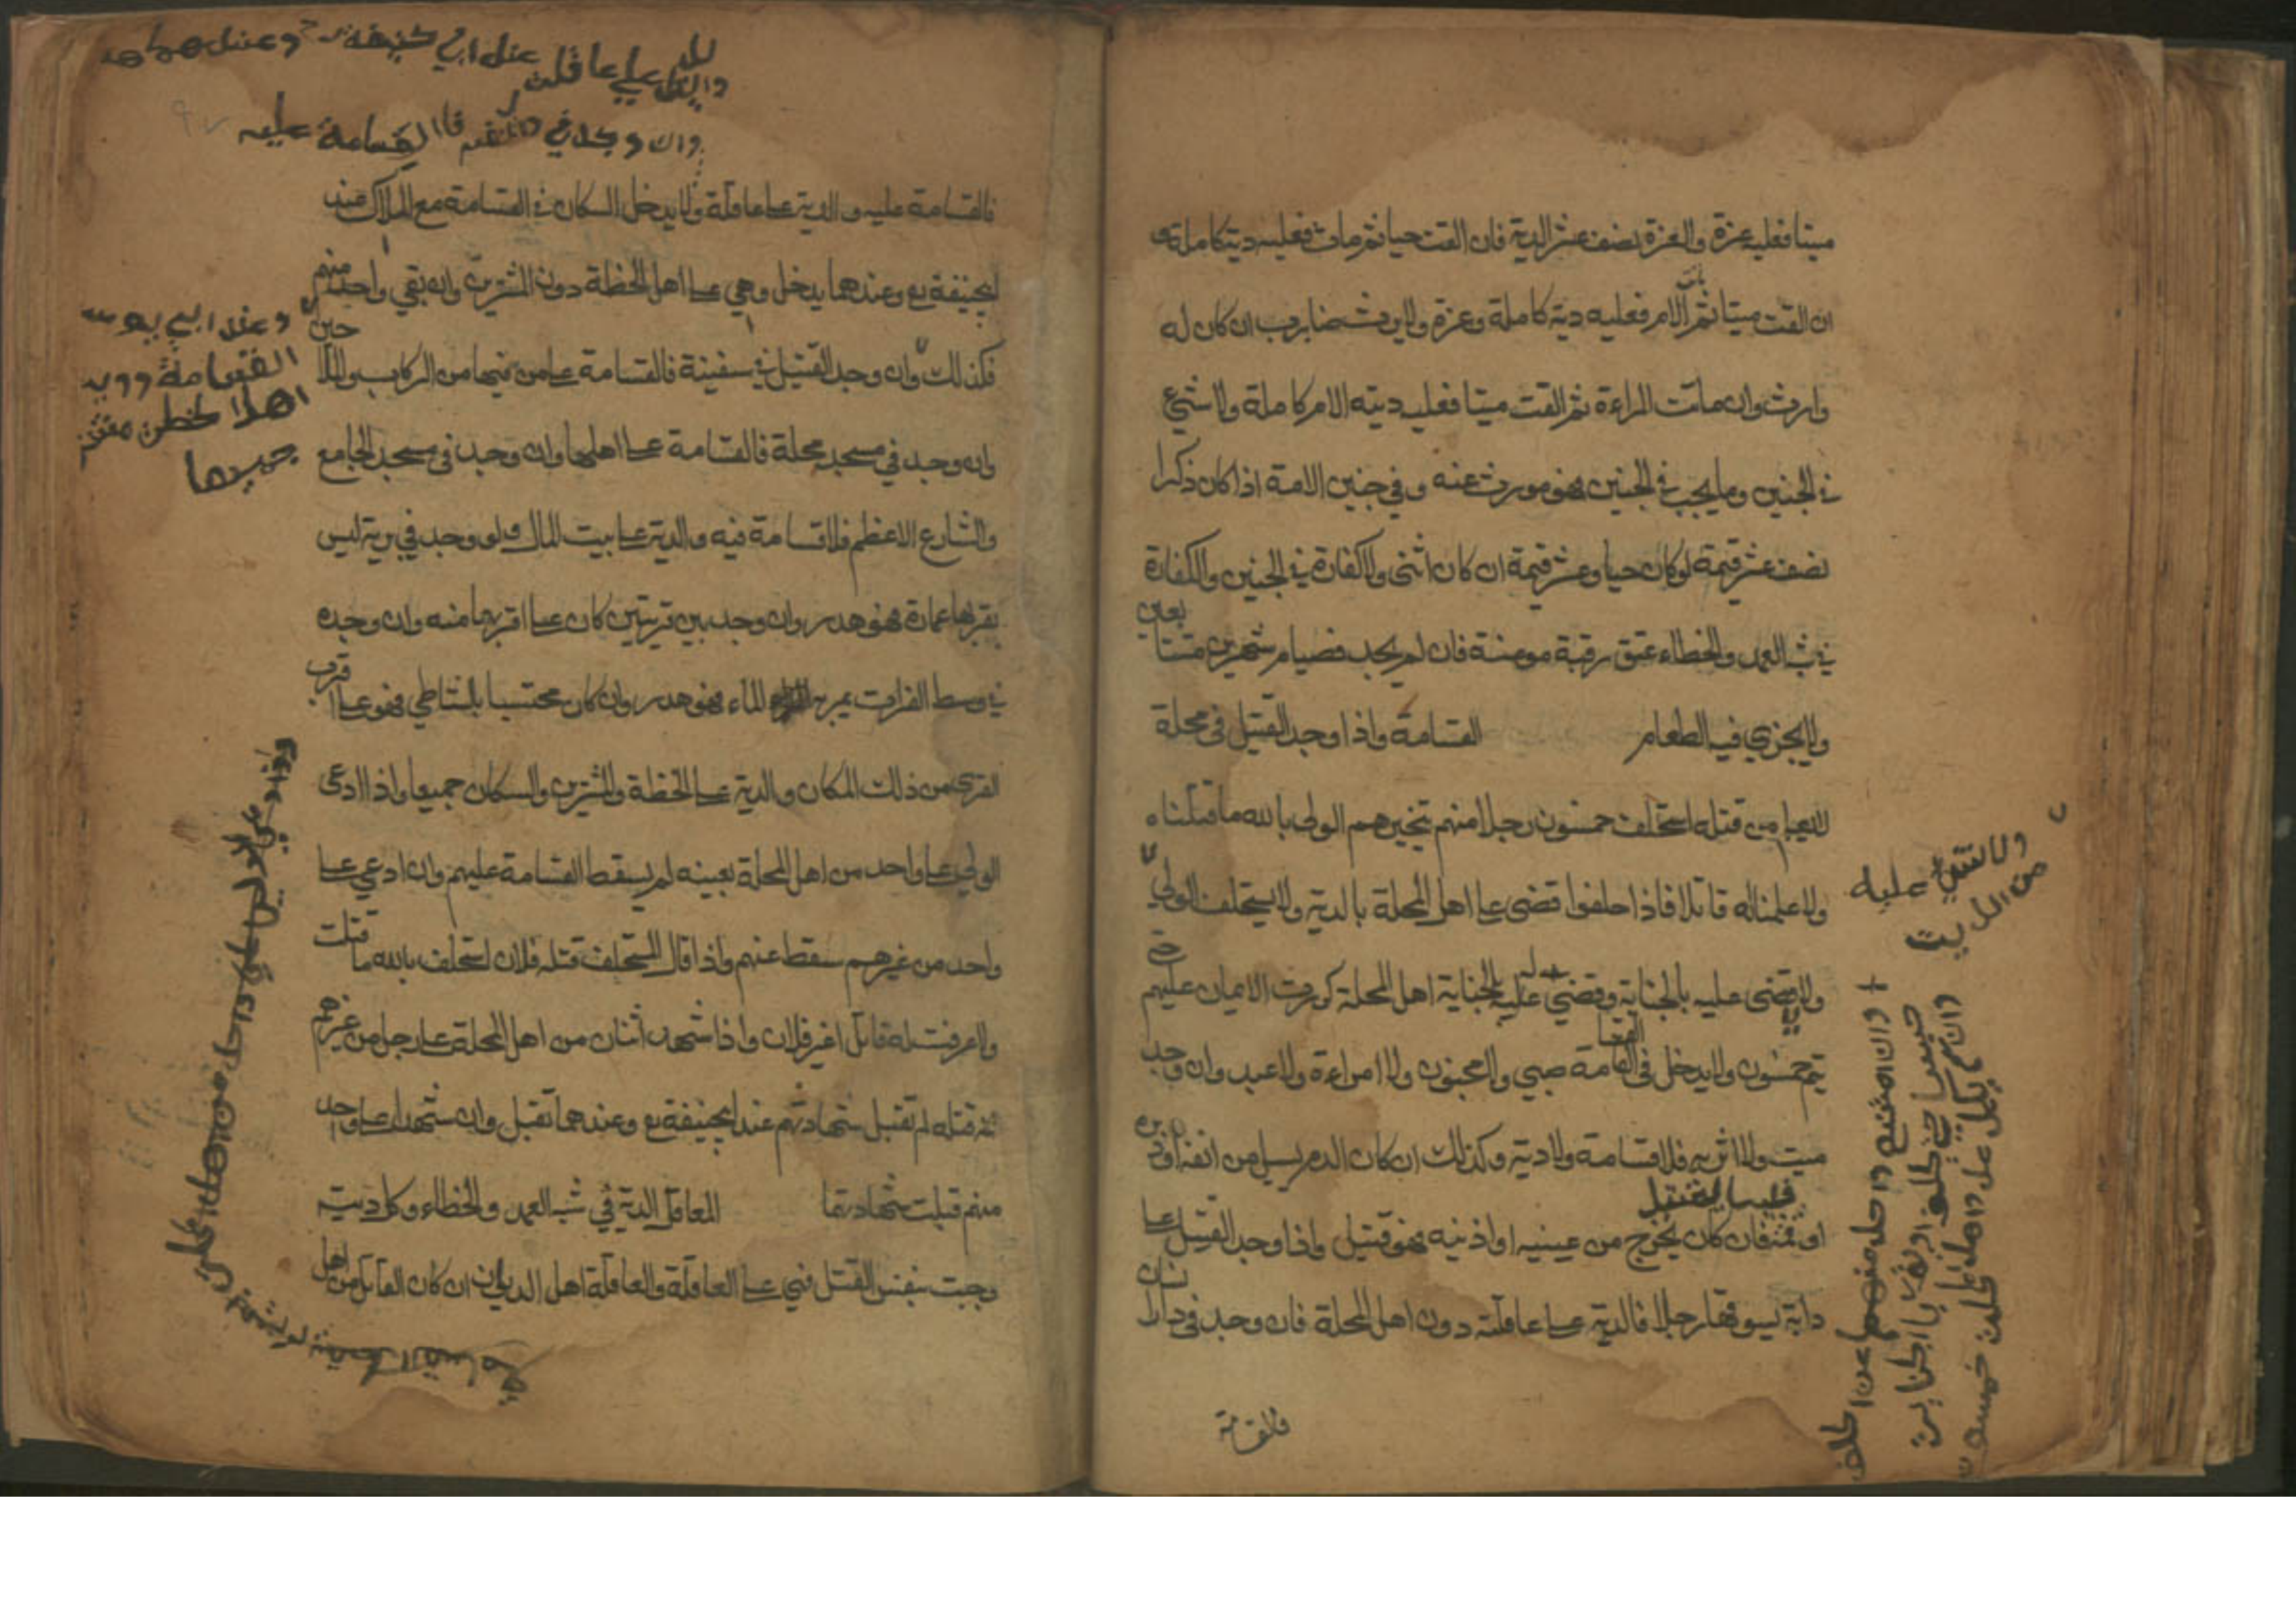 ميتا فعليه غرة والغرة نصف عشر الدية فان القت حيا ثم مات فعليه دية كاملة وى
ان القت ميتا ثم ماتت الام فعليه دية كاملة وغرة ولا يرث ضارب ان كان له
وارث وان ماتت المراءة ثم القت ميتا فعليه دية الام كاملة ولا شئ
فى الجنين وما يجب فى الجنين فهو موروث عنه وفي جنين الامة اذا كان ذكرا
نصف عشر قيمة لو كان حيا وعشر قيمة ان كان انثى ولا كفارة فى الجنين والكفارة
فى شبه العمد والخطاء عتق رقبة مومنة فان لم يجد فصيام شهرين متتابعين
ولا يجزي فيه الطعام القسامة واذا وجد القتيل فى محلة
لا يعلم من قتله استحلف خمسون رجلا منهم يتخيرهم الولى بالله ما قتلناه
ولا علمنا له قاتلا فاذا حلفوا قضى على اهل المحلة بالدية ولا يستحلف الولي
ولا يقضى عليه بالجناية وقضي عليه بالجناية اهل المحلة كررت الايمان عليهم حتى
يتم خمسون ولا يدخل فى القسامة صبي ولا مجنون ولا امراءة ولا عبد وان وجد
ميت ولا اثر به فلا قسامة ولا دية وكذلك ان كان الدم يسيل من انفه او دبره
او فمه فان كان يخرج من عينيه او اذنيه فهو قتيل واذا وجد القتيل على
دابة يسوقها رجلا فالدية على عاقلته دون اهل المحلة فان وجد فى دار انسان
فالقسامة
عليه من الدية
وان امتنع واحد منهم عن الحلف
حبس حتى يحلف او يقر بالجناية
وان لم يكمل عدد اهل المحلة خمسون
والدية على عاقلته عند ابي حنيفة وعندهما
وان وجد في فالقسامة عليه
فالقسامة عليه والدية على عاقلة ولا يدخل السكان فى القسامة مع الملاك عند
ابيحنيفة رح وعندهما يدخل وهي على اهل الخطة دون المشترين وان بقي واحد منهم
فكذلك وان وجد القتيل فى سفينة فالقسامة على من فيها من الركاب والملاحين
وان وجد في مسجد محلة فالقسامة على اهلها وان وجد فى مسجد الجامع
والشارع الاعظم فلا قسامة فيه والدية على بيت المال ولو وجد في برية ليس
بقربها عمارة فهو هدر وان وجد بين قريتين كان على اقربهما منه وان وجده
فى وسط الفرات يمر به الماء فهو هدر وان كان محتسبا بالشاطي فهو على اقرب
القرى من ذلك المكان والدية على الخطة والمشترين والسكان جميعا واذا ادعى
الولي على واحد من اهل المحلة بعينه لم يسقط القسامة عليهم وان ادعي على
واحد من غيرهم سقط عنهم واذا قال المستحلف قتله فلان استحلف بالله ما قتلت
ولا عرفت له قاتلا غير فلان واذا شهد اثنان من اهل المحلة على رجل من غيرهم
انه قتله لم تقبل شهادتهم عند ابيحنيفة رح وعندهما تقبل وان شهدا على واحد
منهم قبلت شهادتهما المعاقل الدية في شبه العمد والخطاء وكل دية
وجبت بنفس القتل فهي على العاقلة والعاقلة اهل الديوان ان كان القاتل من اهل
وعند ابي يوسف
القسامة
اهل الخطة
جميعا